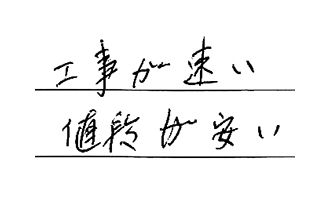 工事が速い
値段が安い